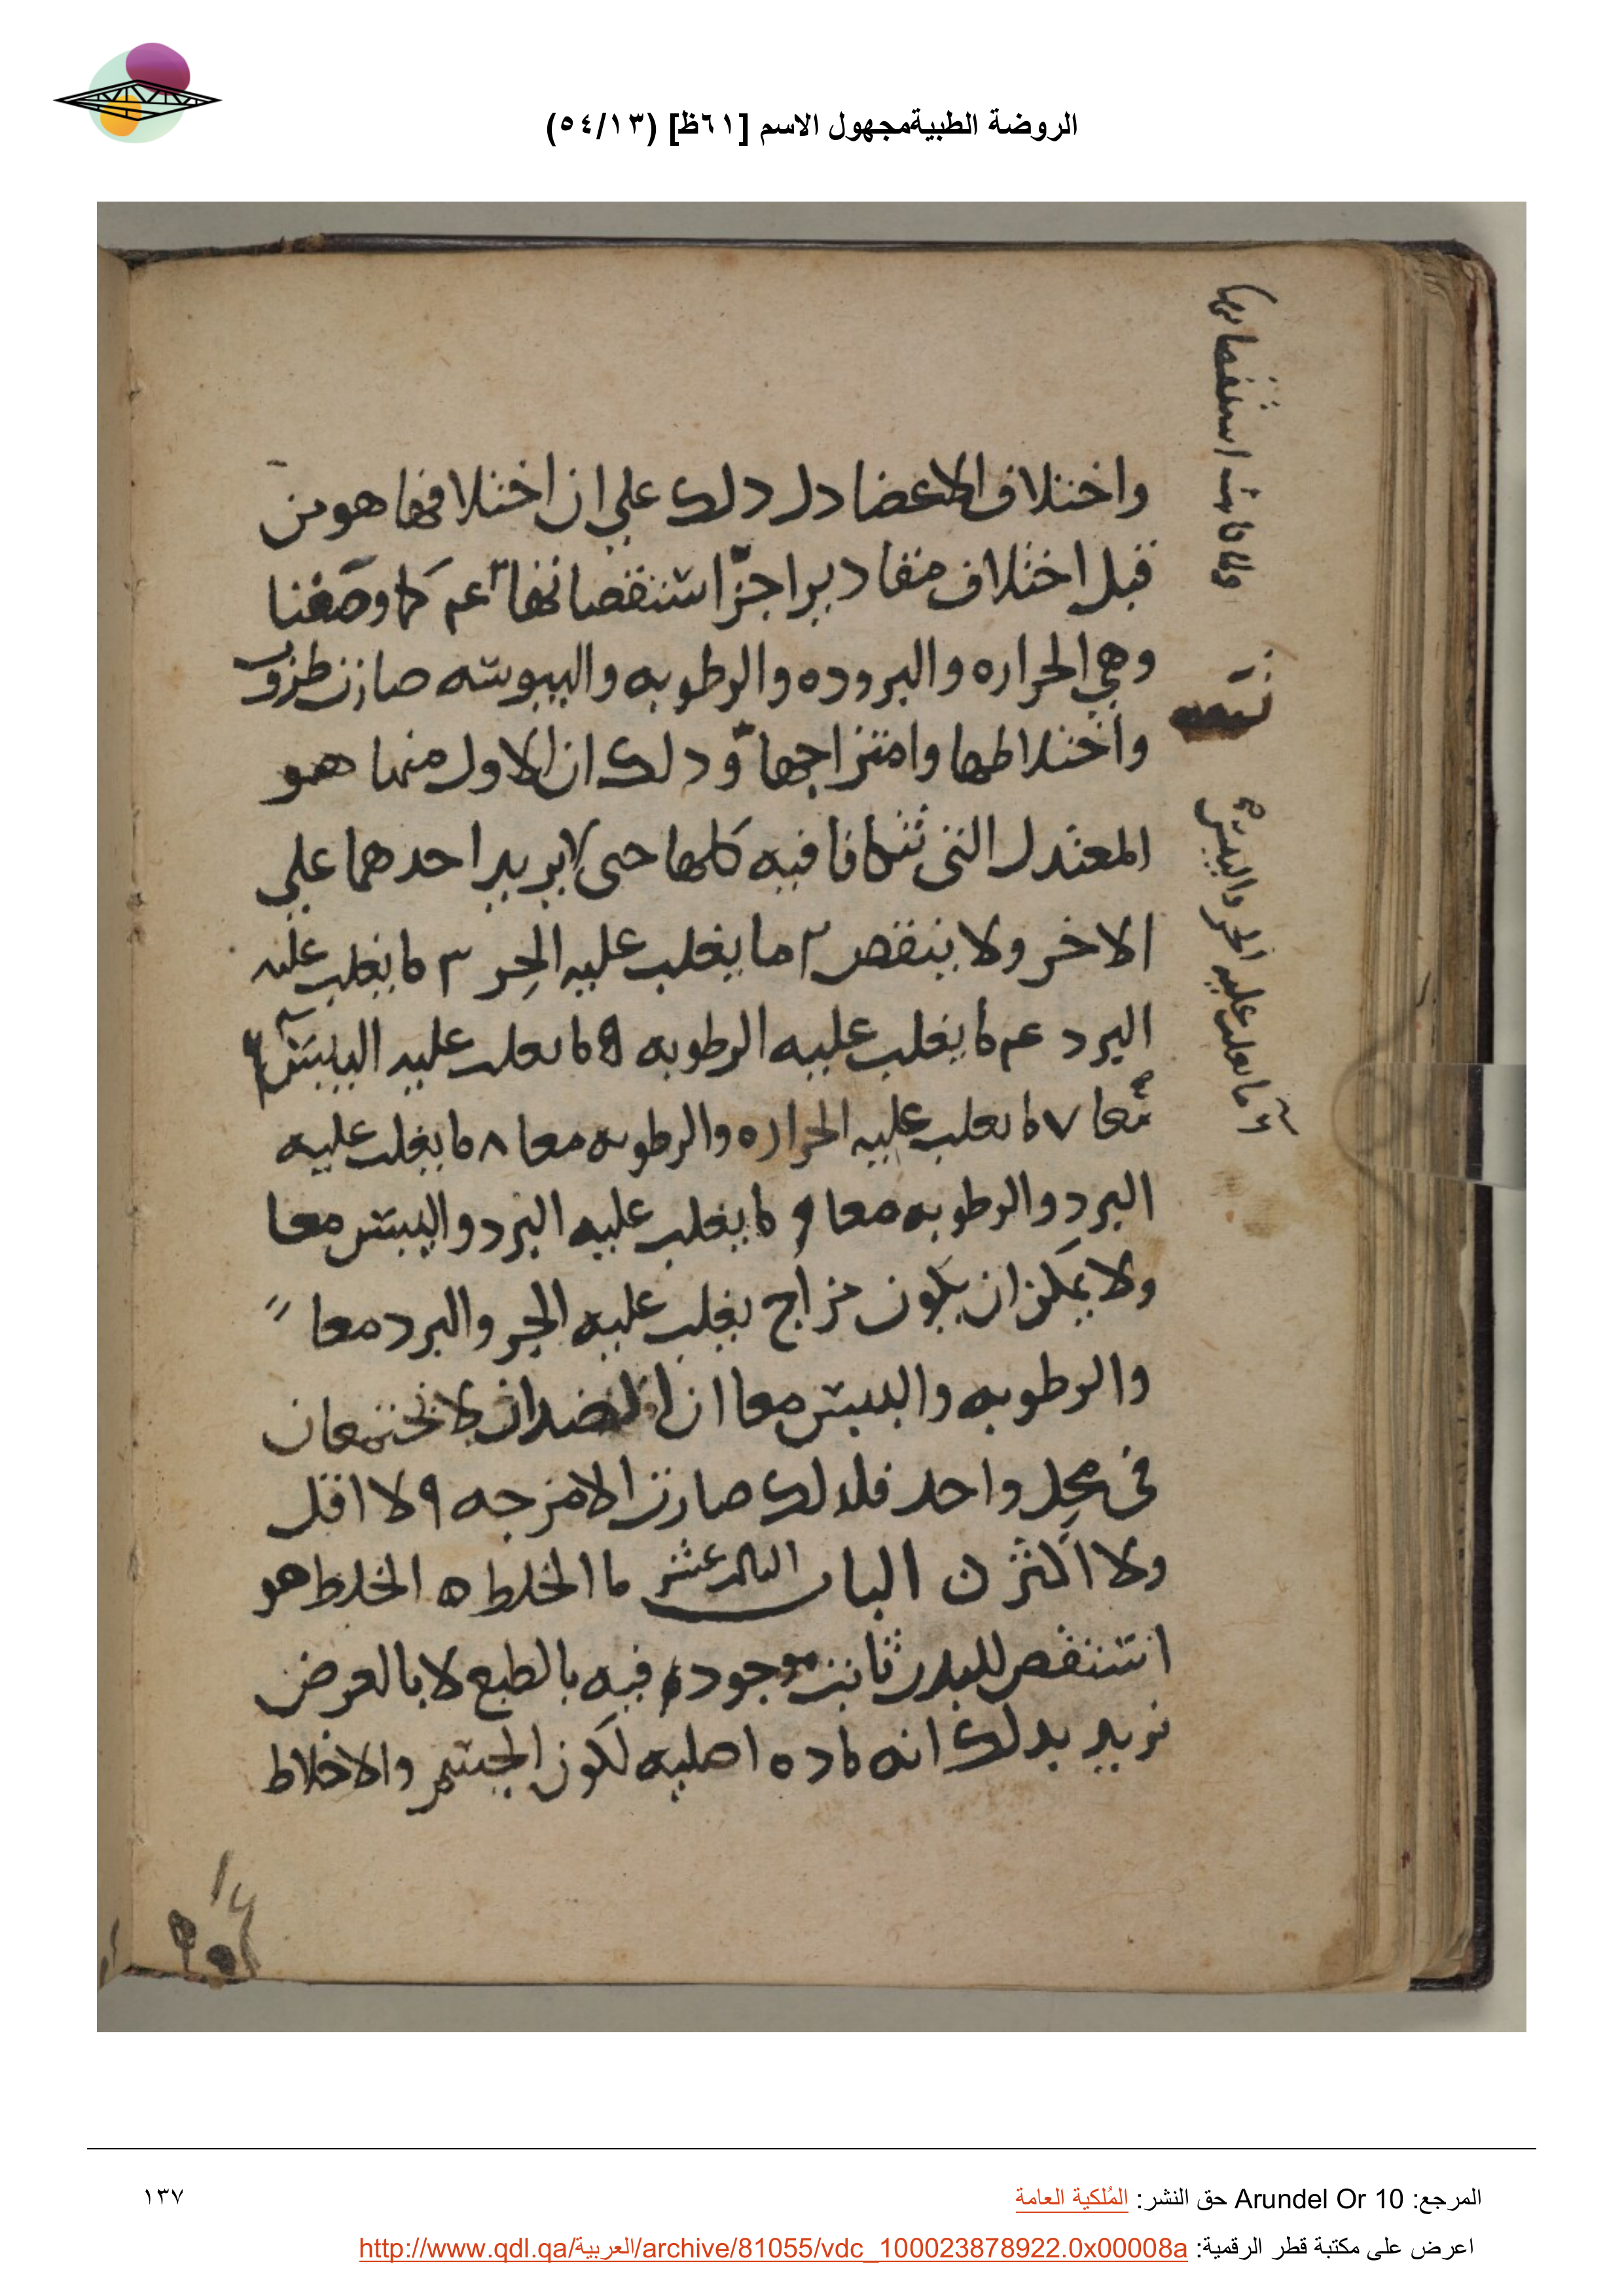 الروضة الطبيةمجهول الاسم [٦١ظ] (٥٤/١٣)
واختلاف الاعضا دل دلك علي ان اختلافها هو من
قبل اختلاف مقادير اجزا استقصاتها ٤ كما وصفنا
وهي الحراره والبروده والرطوبه واليبوسه صارت
واختلاطها وامتزاجها ودلك ان الاول منها هو
المعتدل التى تتكافا فيه كلها حتى لا يزيد احدهما علي
الاخر ولا ينقص ٢ ما يغلب عليه الحر ٣ ما يغلب عليه
البرد ٤ ما يغلب عليه الرطوبه ٥ ما يغلب عليه اليبس
معا ٧ ما يغلب عليه الحراره والرطوبه معا ٨ ما يغلب عليه
البرد والرطوبه معا ٩ ما يغلب عليه البرد واليبس معا
ولا يمكن ان يكون مزاج يغلب عليه الحر والبرد معا
والرطوبه واليبس معا ان الضدان لا يجتمعان
فى محل واحد فلدلك صارت الامزجه ٩ لا اقل
ولا اكثر الباب الثالث عشر ما الخلط ه الخلط هو
استقص للبدن ثابت موجود فيه بالطبع لا بالعرض
نريد بدلك انه ماده اصليه لكون الجسم والاخلاط
ولما كانت استقصاتها
تسعه
٦ ما يغلب عليه الحر واليبس
المرجع: Arundel Or 10 حق النشر: المُلكية العامة
١٣٧
اعرض على مكتبة قطر الرقمية: http://www.qdl.qa/العربية/archive/81055/vdc_100023878922.0x00008a